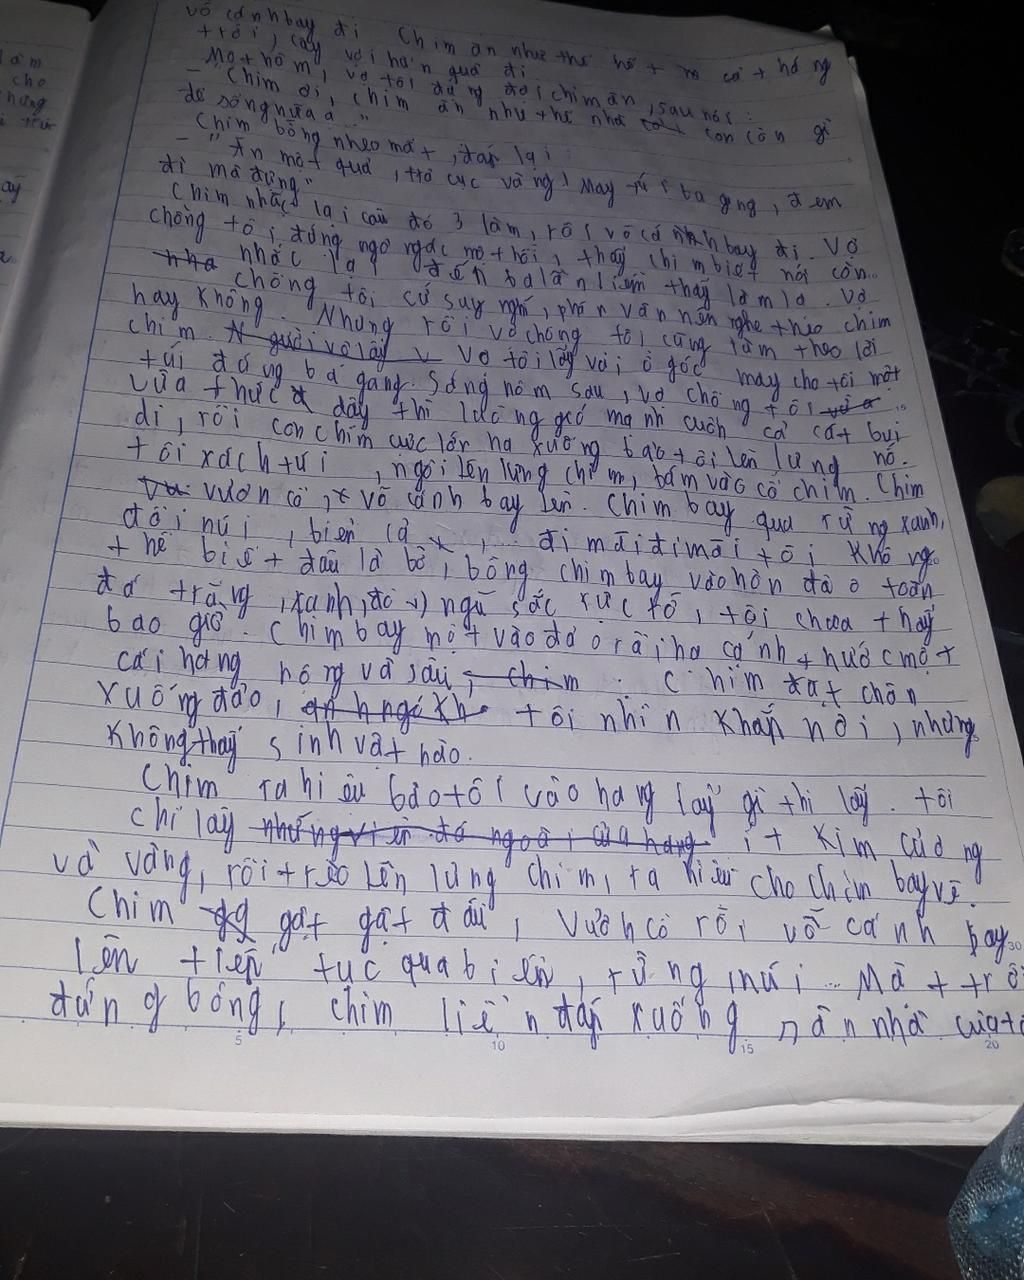 vỗ cánh bay đi Chim ăn như thế hết ro cả tháng
trời, cây vợi hẳn quả đi
Một hôm, vợ tôi đứng đợi chim ăn, sau nói:
- "Chim ơi, chim ăn như thế nhà con còn gì
để sống nữa ạ.."
Chim bỗng nheo mắt, đáp lại:
- "Ăn một quả, trả cục vàng! May túi ba gang, đem
đi mà đựng"
Chim nhắc lại câu đó 3 lần, rồi vỗ cánh bay đi. Vợ
chồng tôi, đứng ngơ ngác một hồi, thấy chim biết nói còn..
nhắc lại đến ba lần liền thấy làm lạ. Vợ
chồng tôi cứ suy nghĩ, phân vân nên nghe theo chim
hay không. Nhưng rồi vợ chồng tôi cũng làm theo lời
chim. N gười vô lấy v vợ tôi lấy vải ở góc may cho tôi một
túi đúng ba gang. Sáng hôm sau, vợ chồng tôi
vừa thức dậy thì luồng gió mạnh cuốn cả cát bụi
đi, rồi con chim cực lớn hạ xuống bảo tôi lên lưng nó.
tôi xách túi, ngồi lên lưng chim, bám vào cổ chim. Chim
vươn cổ, vỗ cánh bay lên. Chim bay qua rừng xanh,
đồi núi, biển cả, ... đi mãi đi mãi tôi không
thể biết đâu là bờ, bỗng chim bay vào hòn đảo toàn
đá trắng, xanh, đỏ ngũ sắc rực rỡ, tôi chưa thấy
bao giờ. Chim bay một vào đảo rồi hạ cánh trước một
cái hang rộng và sâu, chim . Chim đặt chân
xuống đảo, tôi nhìn khắp nơi, nhưng
không thấy sinh vật nào.
Chim ra hiệu bảo tôi vào hang lấy gì thì lấy. tôi
chỉ lấy những viên đá ngoài cửa hang ít kim cương
và vàng, rồi trèo lên lưng chim, ra hiệu cho chim bay về.
Chim gật gật đầu, vươn cổ rồi vỗ cánh bay
lên tiếp tục qua biển, rừng, núi... Mặt trời
đứng bóng, chim liền đáp xuống sân nhà của tô